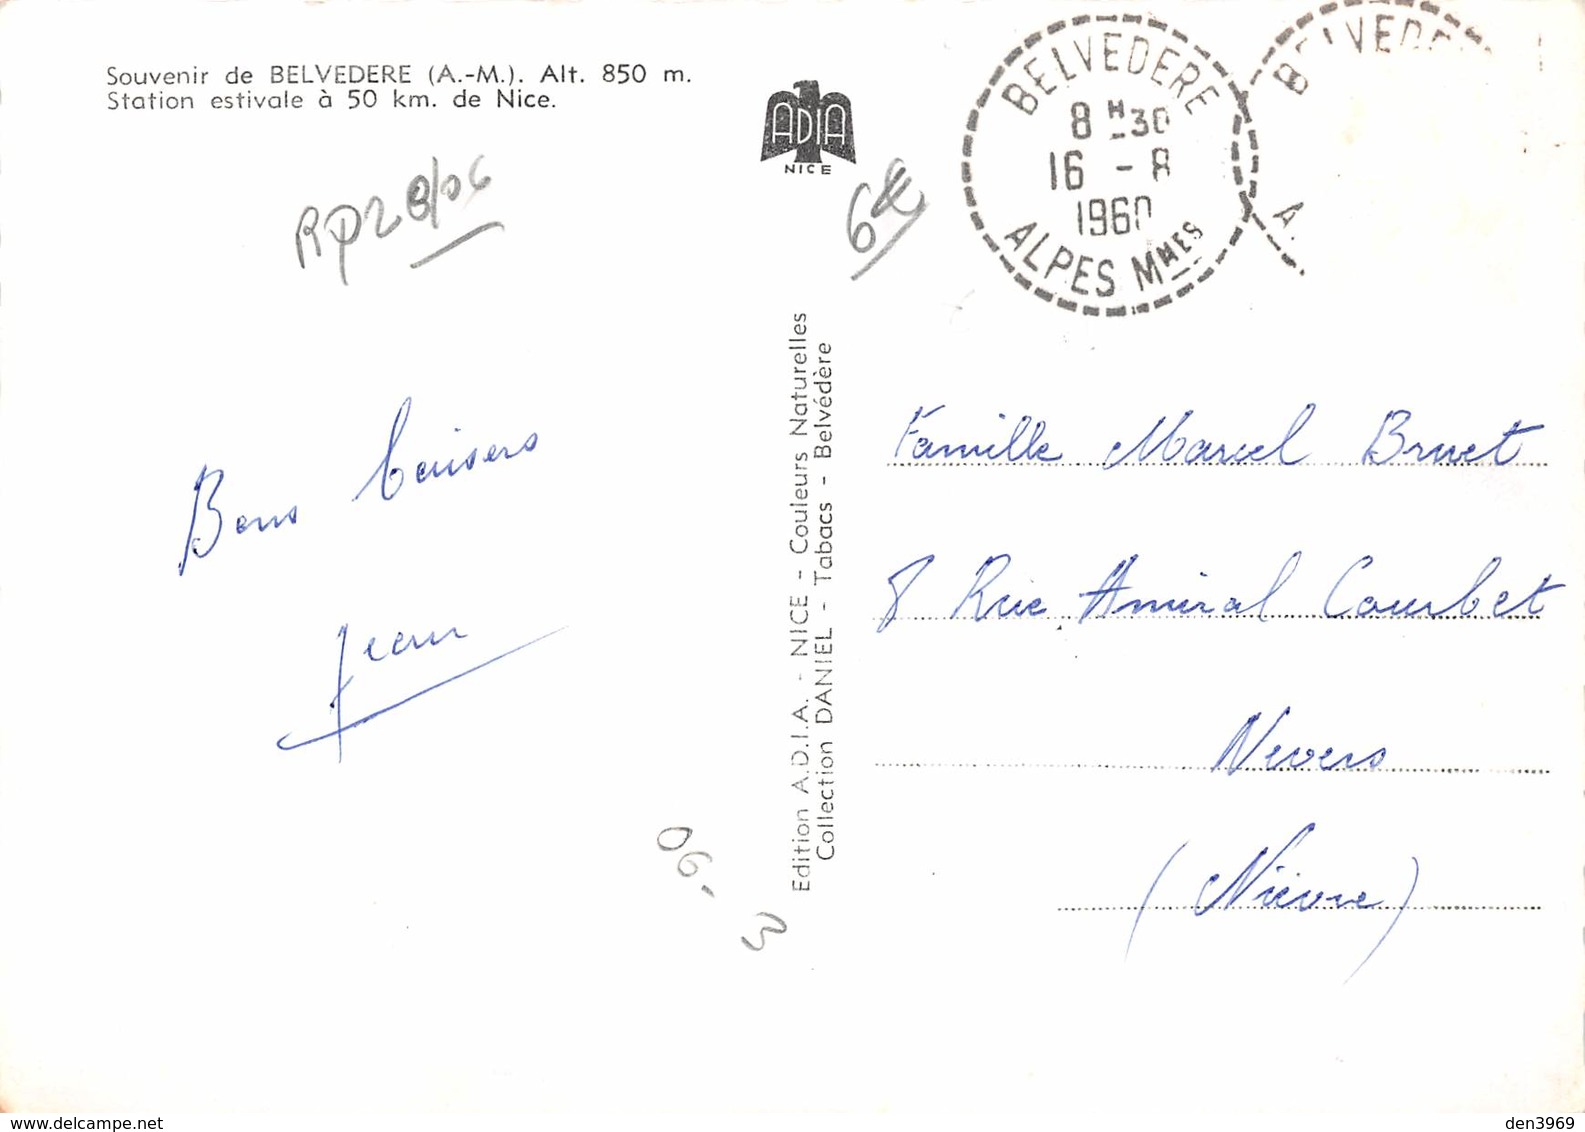 Souvenir de BELVEDERE (A.-M.). Alt. 850 m.
Station estivale à 50 km. de Nice.
ADIA
NICE
BELVEDERE
8 H 30
16 - 8
1960
ALPES MMES
BELVEDE
A.
6€
Bons baisers
Jean
06-
3
Edition A.D.I.A. - NICE - Couleurs Naturelles
Collection DANIEL - Tabacs - Belvédère
Famille Marcel Bruet
8 Rue Amiral Courbet
Nevers
(Nièvre)
www.delcampe.net
den3969